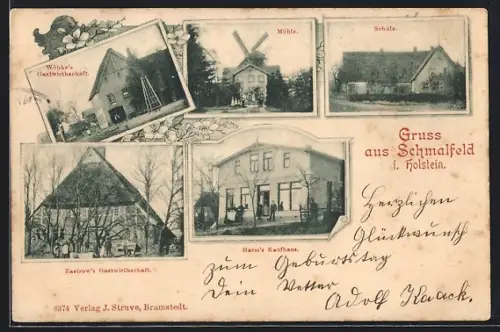 Wöbke's
Gastwirthschaft.
Mühle.
Schule.
Gruss
aus Schmalfeld
i. Holstein.
Zastrow's Gastwirthschaft.
Harm's Kaufhaus.
Herzlichen
Glückwunsch
zum Geburtstag
Dein Vetter
Adolf Kaack.
8374 Verlag J. Struve, Bramstedt.